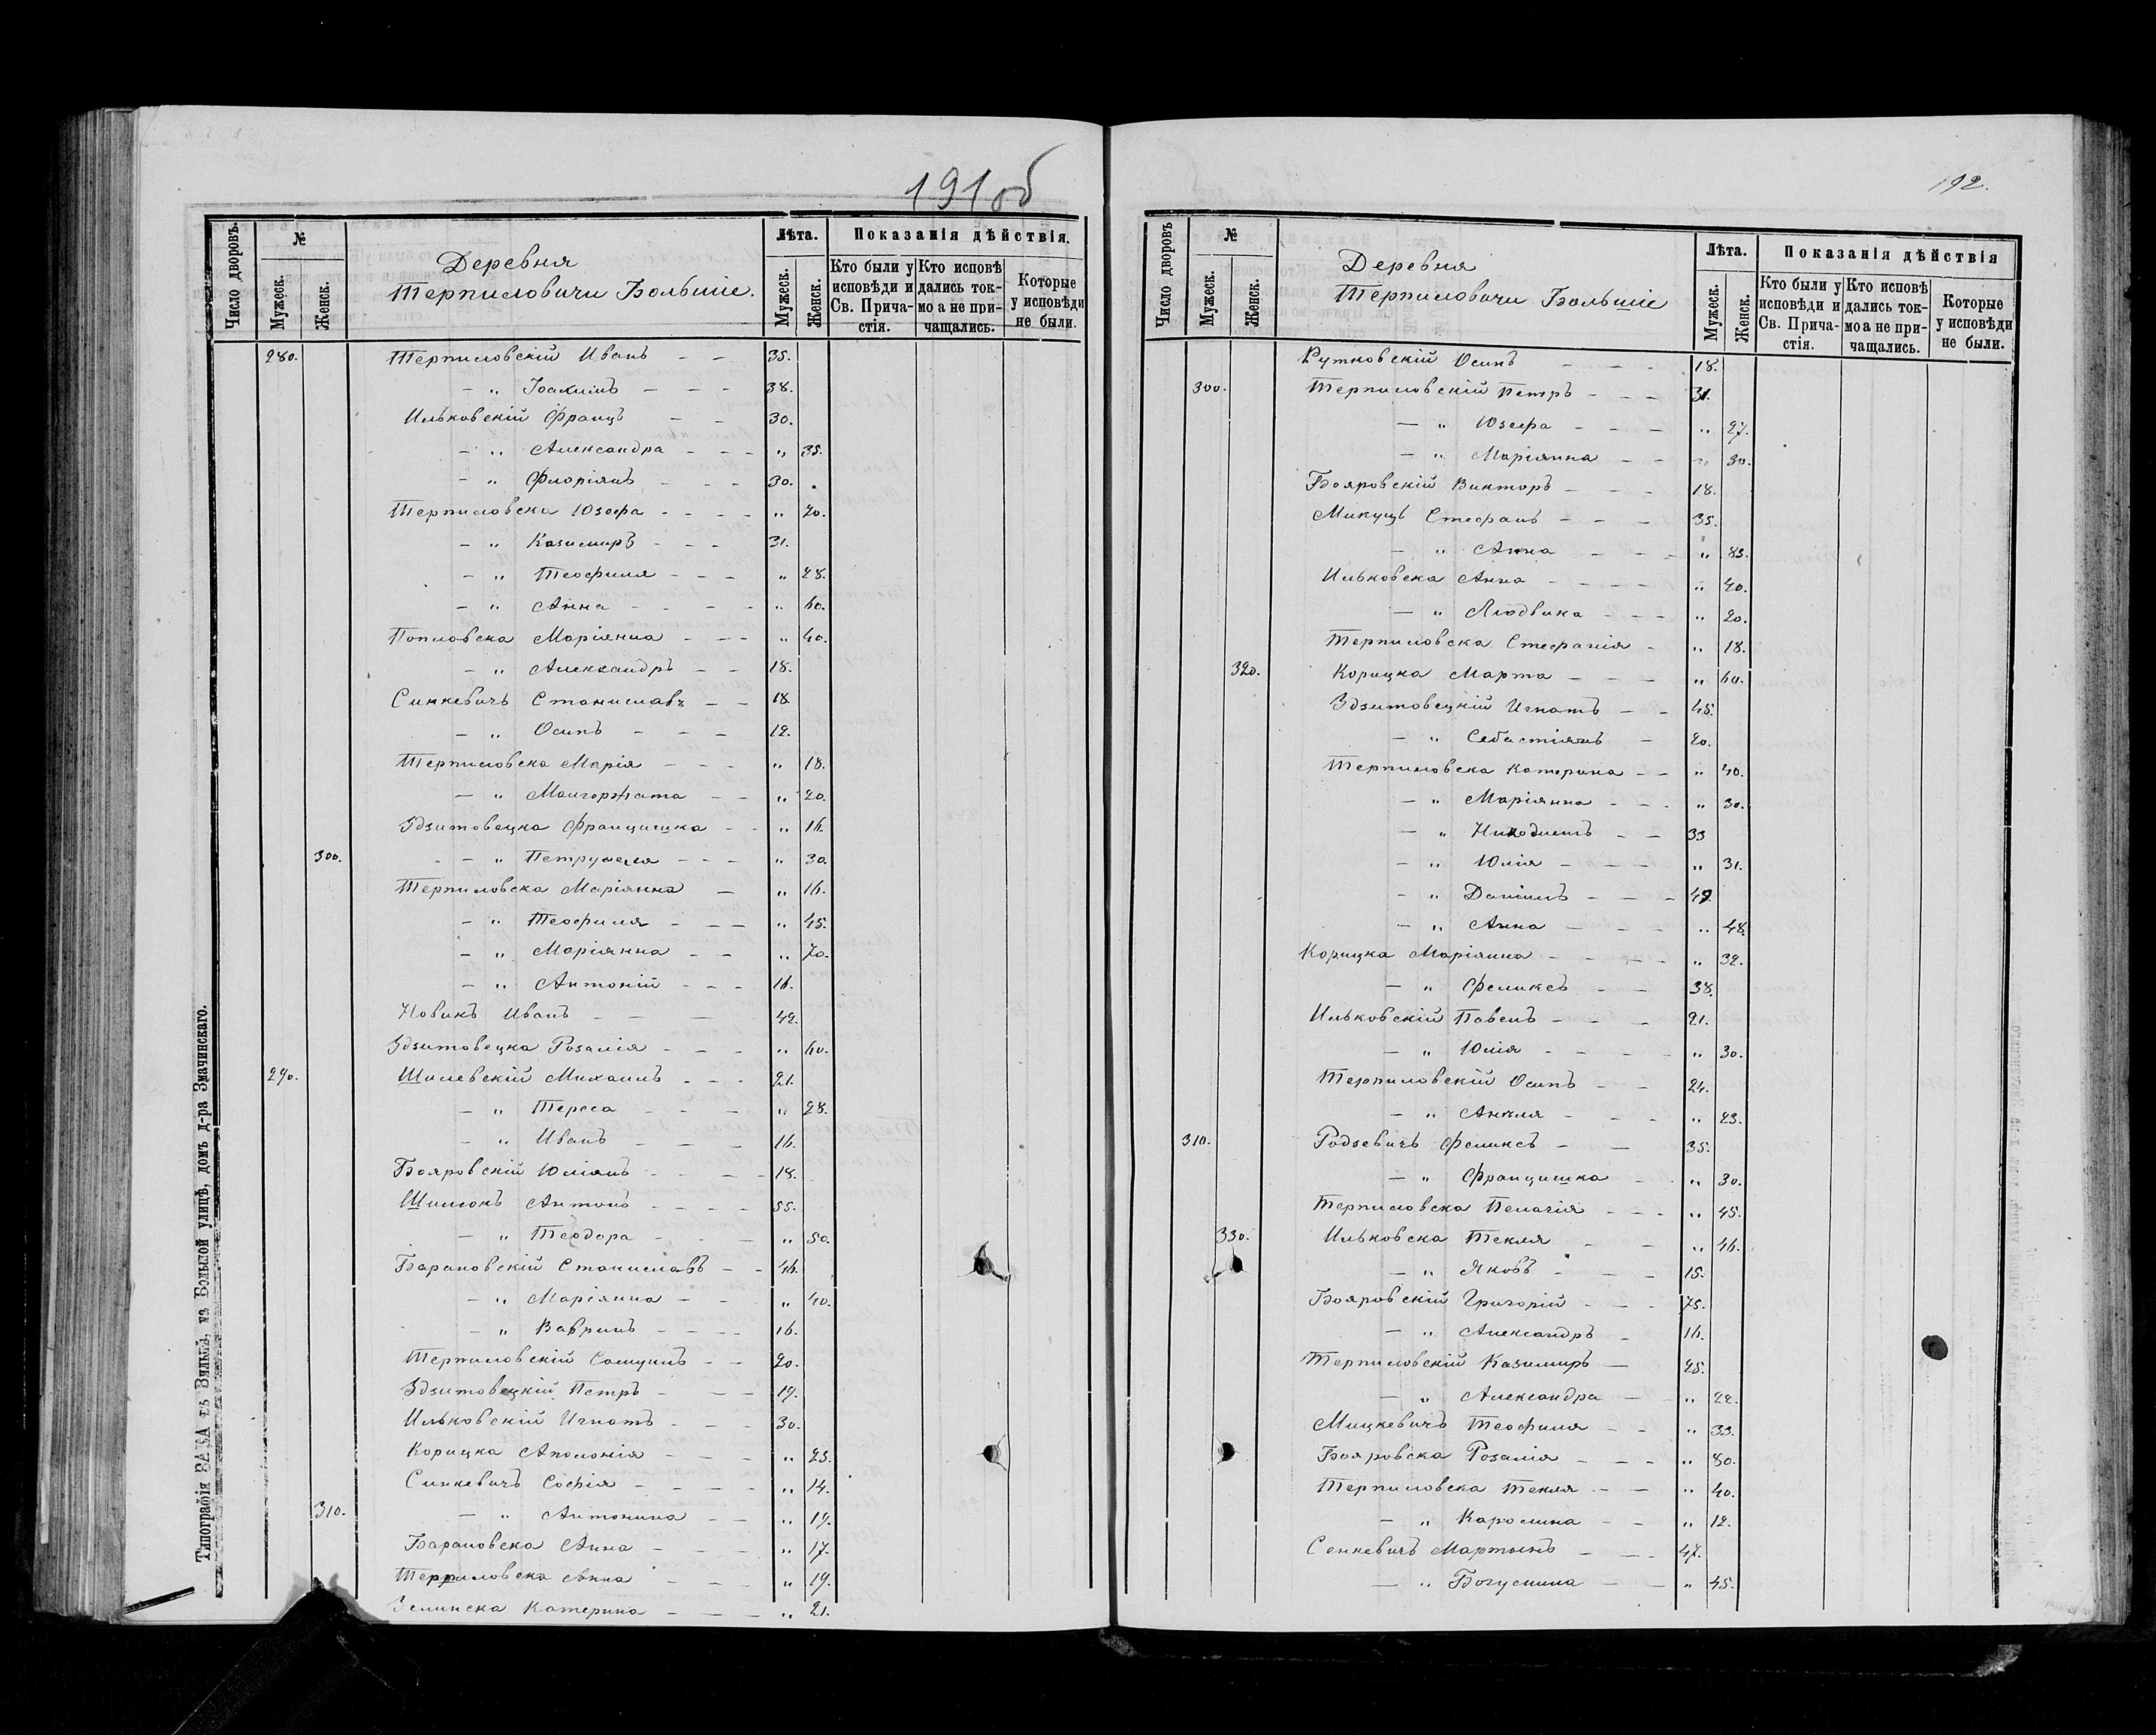 191об
Число дворовъ.
№
Мужеск.
Женск.
Деревня
Терпиловичи Большіе.
Лѣта.
Мужеск.
Женск.
Показанія дѣйствія.
Кто были у исповѣди и Св. Прича-стія.
Кто исповѣ дались ток-мо а не при-чащались.
Которые у исповѣди не были.
280. Терпиловскій Иванъ — — 35.
— „ Іоакимъ — — — 38.
Ильковскій Францъ — — 30.
— „ Александра — — — „ 35.
— „ Флоріянъ — — — 30.
Терпиловска Юзефа — — — — „ 20.
— „ Казимиръ — — — 31.
— „ Теофиля — — — „ 28.
— „ Анна — — — — „ 60.
Попловска Маріянна — — — „ 40.
— „ Александръ — — 18.
Синкевичъ Станиславъ — — 18.
— „ Осипъ — — — 12.
Терпиловска Марія — — — „ 18.
— „ Малгоржата — — „ 20.
Здзитовецка Францишка — — „ 16.
300. — „ Петрунеля — — — „ 30.
Терпиловска Маріянна — „ 16.
— „ Теофиля — — — „ 45.
— „ Маріянна — — „ 70.
— „ Антоній — — — 16.
Новикъ Иванъ — — — 42.
Здзитовецка Розалія — — — „ 60.
290. Шилевскій Михаилъ — — — 21.
— „ Тереса — — — „ 28.
— „ Иванъ — — — 16.
Бояровскій Юліянъ — — — — 18.
Шимокъ Антонъ — — — — 55.
— „ Теодора — — — „ 50.
Барановскій Станиславъ — — 46.
— „ Маріянна — — „ 40.
— „ Ваврин­ъ — — — — 16.
Терпиловскій Самуилъ — — 20.
Здзитовецкій Петръ — — — 19.
Ильковскій Игнатъ — — — 30.
Корицка Аполонія — — — „ 23.
Синкевичъ Софія — — — — „ 14.
310. — „ Антонина — — „ 19.
Барановска Анна — — — „ 17.
Терпиловска Анна — — — „ 19.
Зелинска Катерина — — — „ 21.
Типографія ... въ Вильнѣ, на Большой улицѣ, домъ д-ра Змачинскаго.
192.
Число дворовъ
№
Мужеск.
Женск.
Деревня
Терпиловичи Большіе
Лѣта.
Мужеск.
Женск.
Показанія дѣйствія
Кто были у исповѣди и Св. Прича-стія.
Кто исповѣ дались ток-мо а не при-чащались.
Которые у исповѣди не были.
Рутковскій Осипъ — — — 18.
300. Терпиловскій Петръ — — — 31.
— „ Юзефа — — — „ 27.
— „ Маріянна — — „ 30.
Бояровскій Викторъ — — — 18.
Микуцъ Стефанъ — — — 35.
— „ Анна — — — „ 85.
Ильковска Анна — — — — „ 40.
— „ Людвика — — — „ 20.
Терпиловска Стефанія — „ 18.
320. Корицка Марта — — — „ 60.
Здзитовецкій Игнатъ — — 45.
— „ Себастіянъ — 20.
Терпиловска Катерина — — „ 40.
— „ Маріянна — — — „ 30.
— „ Никодимъ — — 33
— „ Юлія — — — „ 31.
— „ Даніилъ — — — 49.
— „ Анна — — — „ 48.
Корицка Маріянна — — — — „ 32.
— „ Феликсъ — — 38.
Ильковскій Павелъ — — — 21.
— „ Юлія — — — — „ 30.
Терпиловскій Осипъ — — 24.
— „ Анеля — — — „ 23.
310. Родзевичъ Феликсъ — — 35.
— „ Францишка — — „ 30.
Терпиловска Пелагія — — — „ 45.
330. Ильковска Текля — — „ 46.
— „ Яковъ — — — 15.
Бояровскій Григорій — — — 75.
— „ Александръ — 16.
Терпиловскій Казимиръ — 25.
— „ Александра — — „ 22.
Мицкевичъ Теофиля — — „ 33.
Бояровска Розалія — — — „ 80.
Терпиловска Текля — — „ 40.
— „ Каролина — — „ 12.
Сенкевичъ Мартынъ — — — 47.
— „ Богумила — — „ 45.